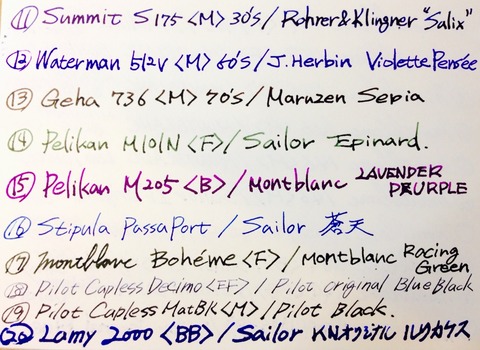 ⑪ Summit S175 <M> 30's / Rohrer & Klingner "Salix"
⑫ Waterman 512V <M> 60's / J. Herbin Violette Pensée
⑬ Geha 736 <M> 70's / Maruzen Sepia
⑭ Pelikan M101N <F> / Sailor Epinard.
⑮ Pelikan M205 <B> / Montblanc LAVENDER PEURPLE
⑯ Stipula Passaport / Sailor 蒼天
⑰ Montblanc Bohéme <F> / Montblanc Racing Green
⑱ Pilot Capless Decimo <EF> / Pilot original Blue Black
⑲ Pilot Capless Mat Blk <M> / Pilot Black.
⑳ Lamy 2000 <BB> / Sailor KNオリジナル ルリカケス